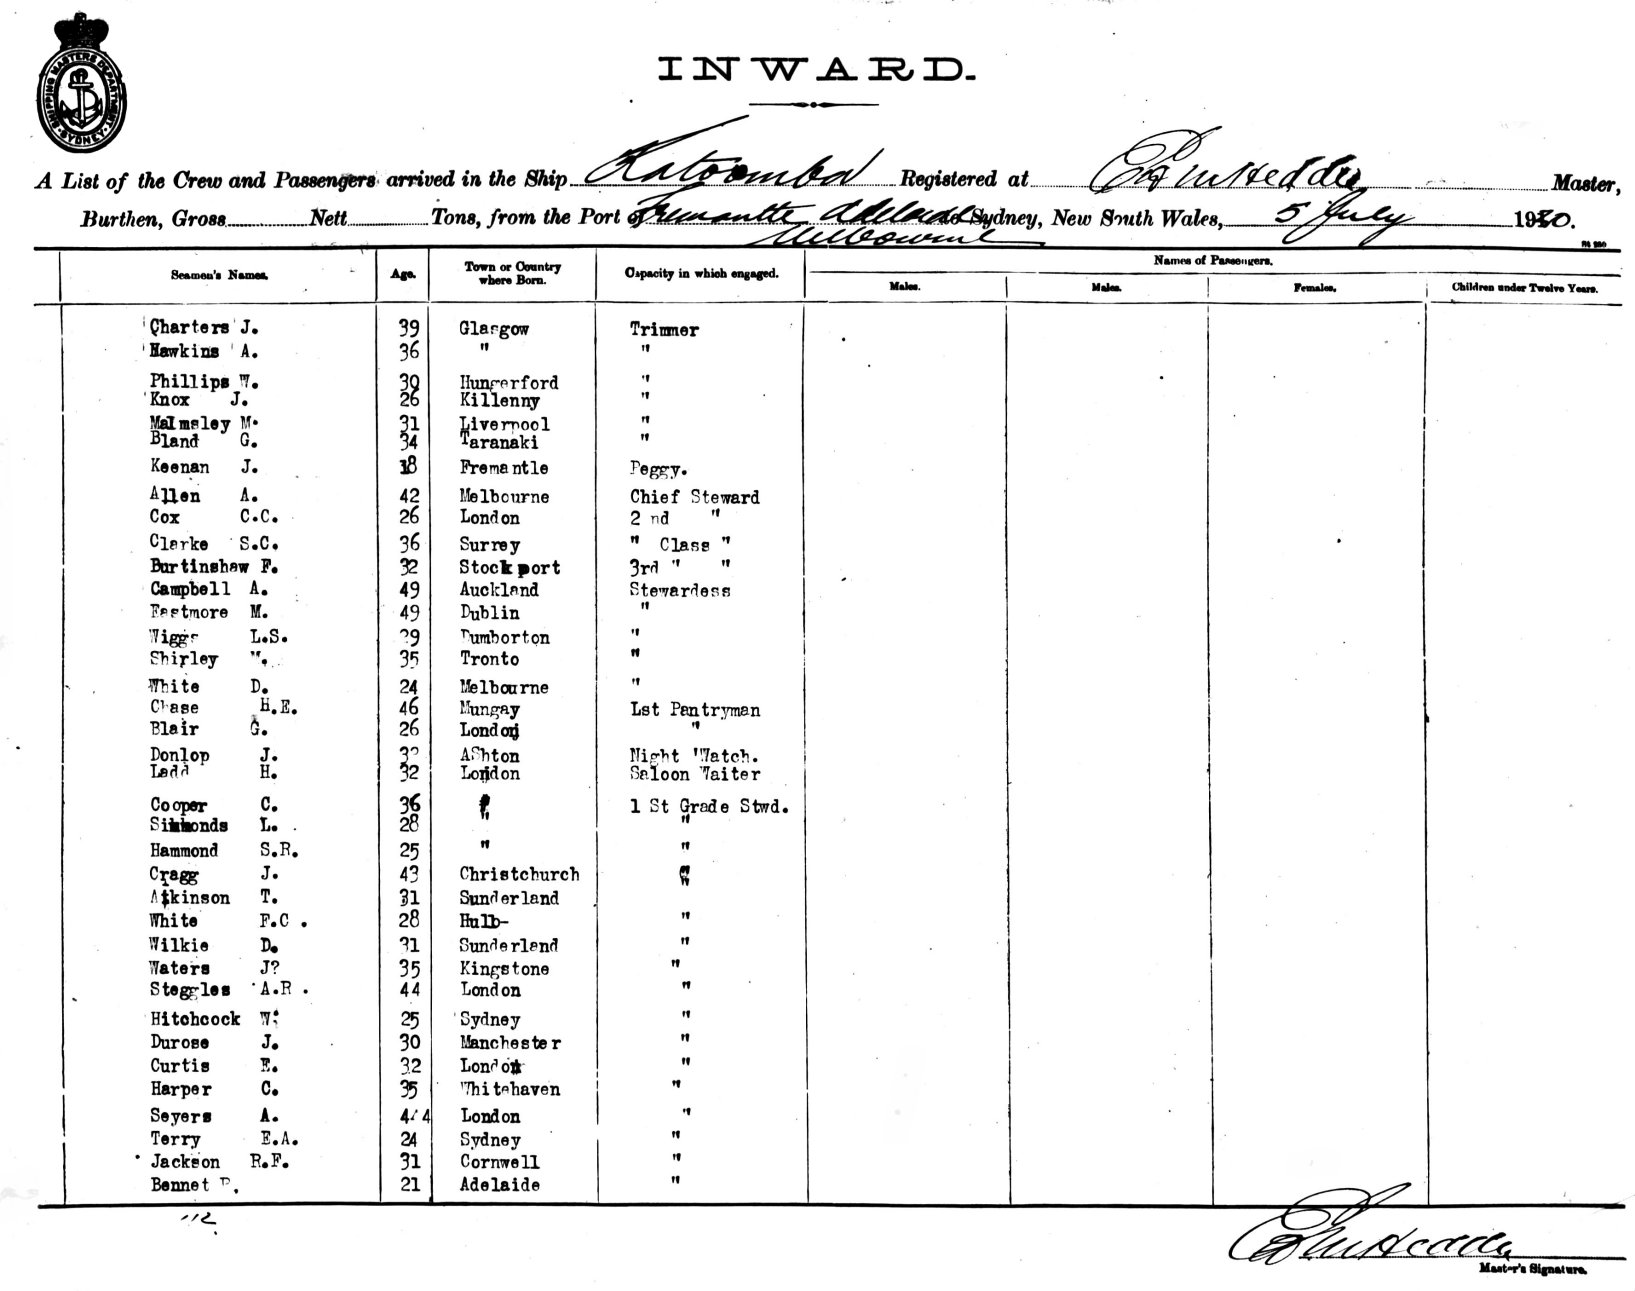 SHIPPING MASTERS DEPARTMENT SYDNEY
INWARD.
A List of the Crew and Passengers arrived in the Ship Katoomba Registered at Master,
Burthen, Gross Nett Tons, from the Port of Fremantle Adelaide to Sydney, New South Wales, 5 July 1920.
Melbourne
Seamen's Names. Age. Town or Country where Born. Capacity in which engaged. Names of Passengers.
Males. Males. Females. Children under Twelve Years.
Charters J. 39 Glasgow Trimmer
Hawkins A. 36 " "
Phillips W. 39 Hungerford "
Knox J. 26 Killenny "
Malmsley M. 31 Liverpool "
Bland G. 34 Taranaki "
Keenan J. 18 Fremantle Peggy.
Allen A. 42 Melbourne Chief Steward
Cox C.C. 26 London 2 nd "
Clarke S.C. 36 Surrey " Class "
Burtinshaw F. 32 Stockport 3rd " "
Campbell A. 49 Auckland Stewardess
Eastmore M. 49 Dublin "
Wiggs L.S. 29 Dumborton "
Shirley 35 Tronto "
White D. 24 Melbourne "
Chase H.E. 46 Mungay Lst Pantryman
Blair G. 26 London "
Donlop J. AShton Night Watch.
Ladd H. 32 London Saloon Waiter
Cooper C. 36 " 1 St Grade Stwd.
Simmonds L. 28 " "
Hammond S.R. 25 " "
Cragg J. 43 Christchurch "
Atkinson T. 31 Sunderland "
White F.C . 28 Hull- "
Wilkie D. 31 Sunderland "
Waters J? 35 Kingstone "
Steggles A.R . 44 London "
Hitchcock W. 25 Sydney "
Durose J. 30 Manchester "
Curtis E. 32 London "
Harper C. 35 Whitehaven "
Seyers A. 44 London "
Terry E.A. 24 Sydney "
Jackson R.F. 31 Cornwell "
Bennet 21 Adelaide "
112
Master's Signature.